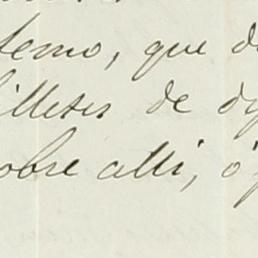 temo, que d
illetes de d
obre alli, ó